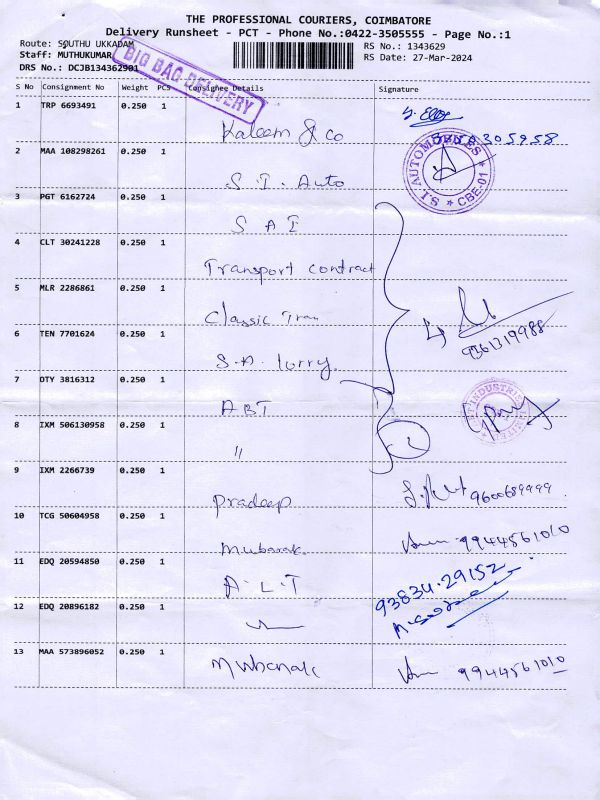 THE PROFESSIONAL COURIERS, COIMBATORE
Delivery Runsheet - PCT - Phone No.:0422-3505555 - Page No.:1
Route: SOUTHU UKKADAM
RS No.: 1343629
Staff: MUTHUKUMAR
RS Date: 27-Mar-2024
DRS No.: DCJB134362901
BIG BAG DELIVERY
S No Consignment No Weight PCS Consignee Details Signature
1 TRP 6693491 0.250 1 Kaleem & co
2 MAA 108298261 0.250 1 S.I. Auto
S.I. AUTOMOBILES * CBE-01 *
3 PGT 6162724 0.250 1 S A I
4 CLT 30241228 0.250 1 Transport contract
5 MLR 2286861 0.250 1 Classic Tran
6 TEN 7701624 0.250 1 S.A. lorry.
9361319988
7 OTY 3816312 0.250 1 ABT
8 IXM 506130958 0.250 1 "
9 IXM 2266739 0.250 1 Pradeep 9600689999
10 TCG 50604958 0.250 1 Mubarak. 9944561010
11 EDQ 20594850 0.250 1 A.L.T 93834.29152
12 EDQ 20896182 0.250 1
13 MAA 573896052 0.250 1 Mubarak 9944561010